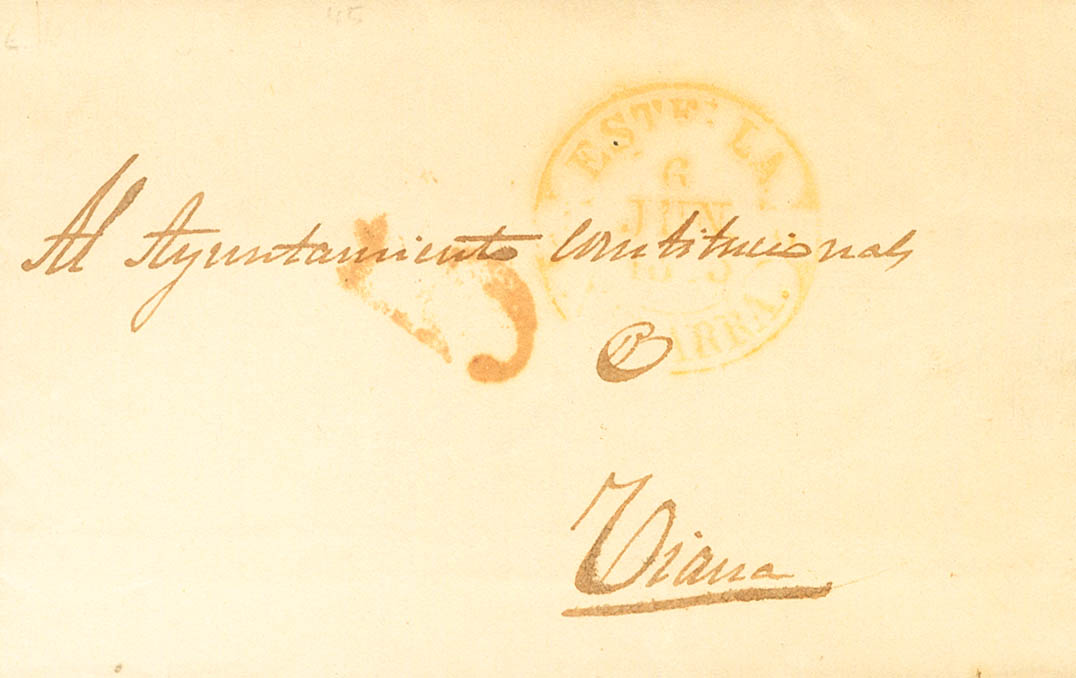 45
ESTELLA
6
JUN
Al Ayuntamiento Constitucional
Viana